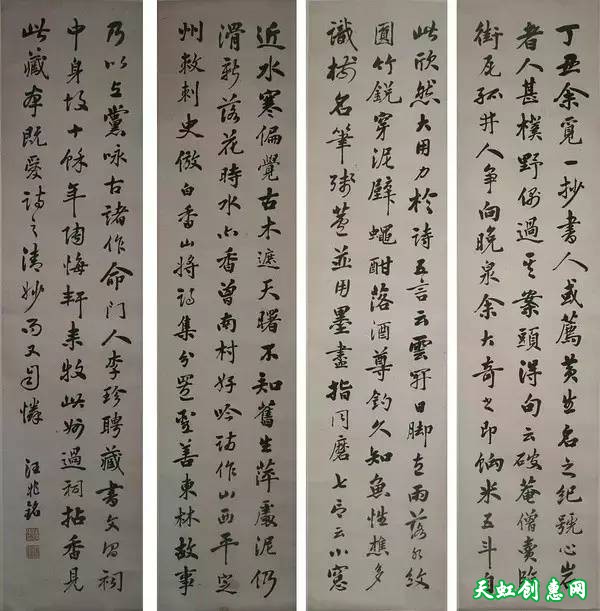 丁丑余覓一抄書人或薦黃生名之紀號心岩
者人甚樸野偶過其案頭得句云破菴僧賣臨
街瓦孤井人爭向晚泉余大奇之即餉米五斗自
此欣然大用力於詩五言云雲開日脚直雨落水紋
圓竹銳穿泥壁蠅酣落酒尊釣久知魚性樵多
識樹名筆殘蘆並用墨盡指同磨七言云小窗
近水寒偏覺古木遮天曙不知舊生萍處泥仍
滑新落花時水亦香曾南村好吟詩作山西平定
州敕刺史倣白香山將詩集分置聖善東林故事
乃以上黨咏古諸作命門人李珍聘藏書文昌祠
中身故十餘年陶悔軒來牧此州過祠拈香見
此藏本既愛詩之清妙而又憐
汪兆銘
天虹创惠网